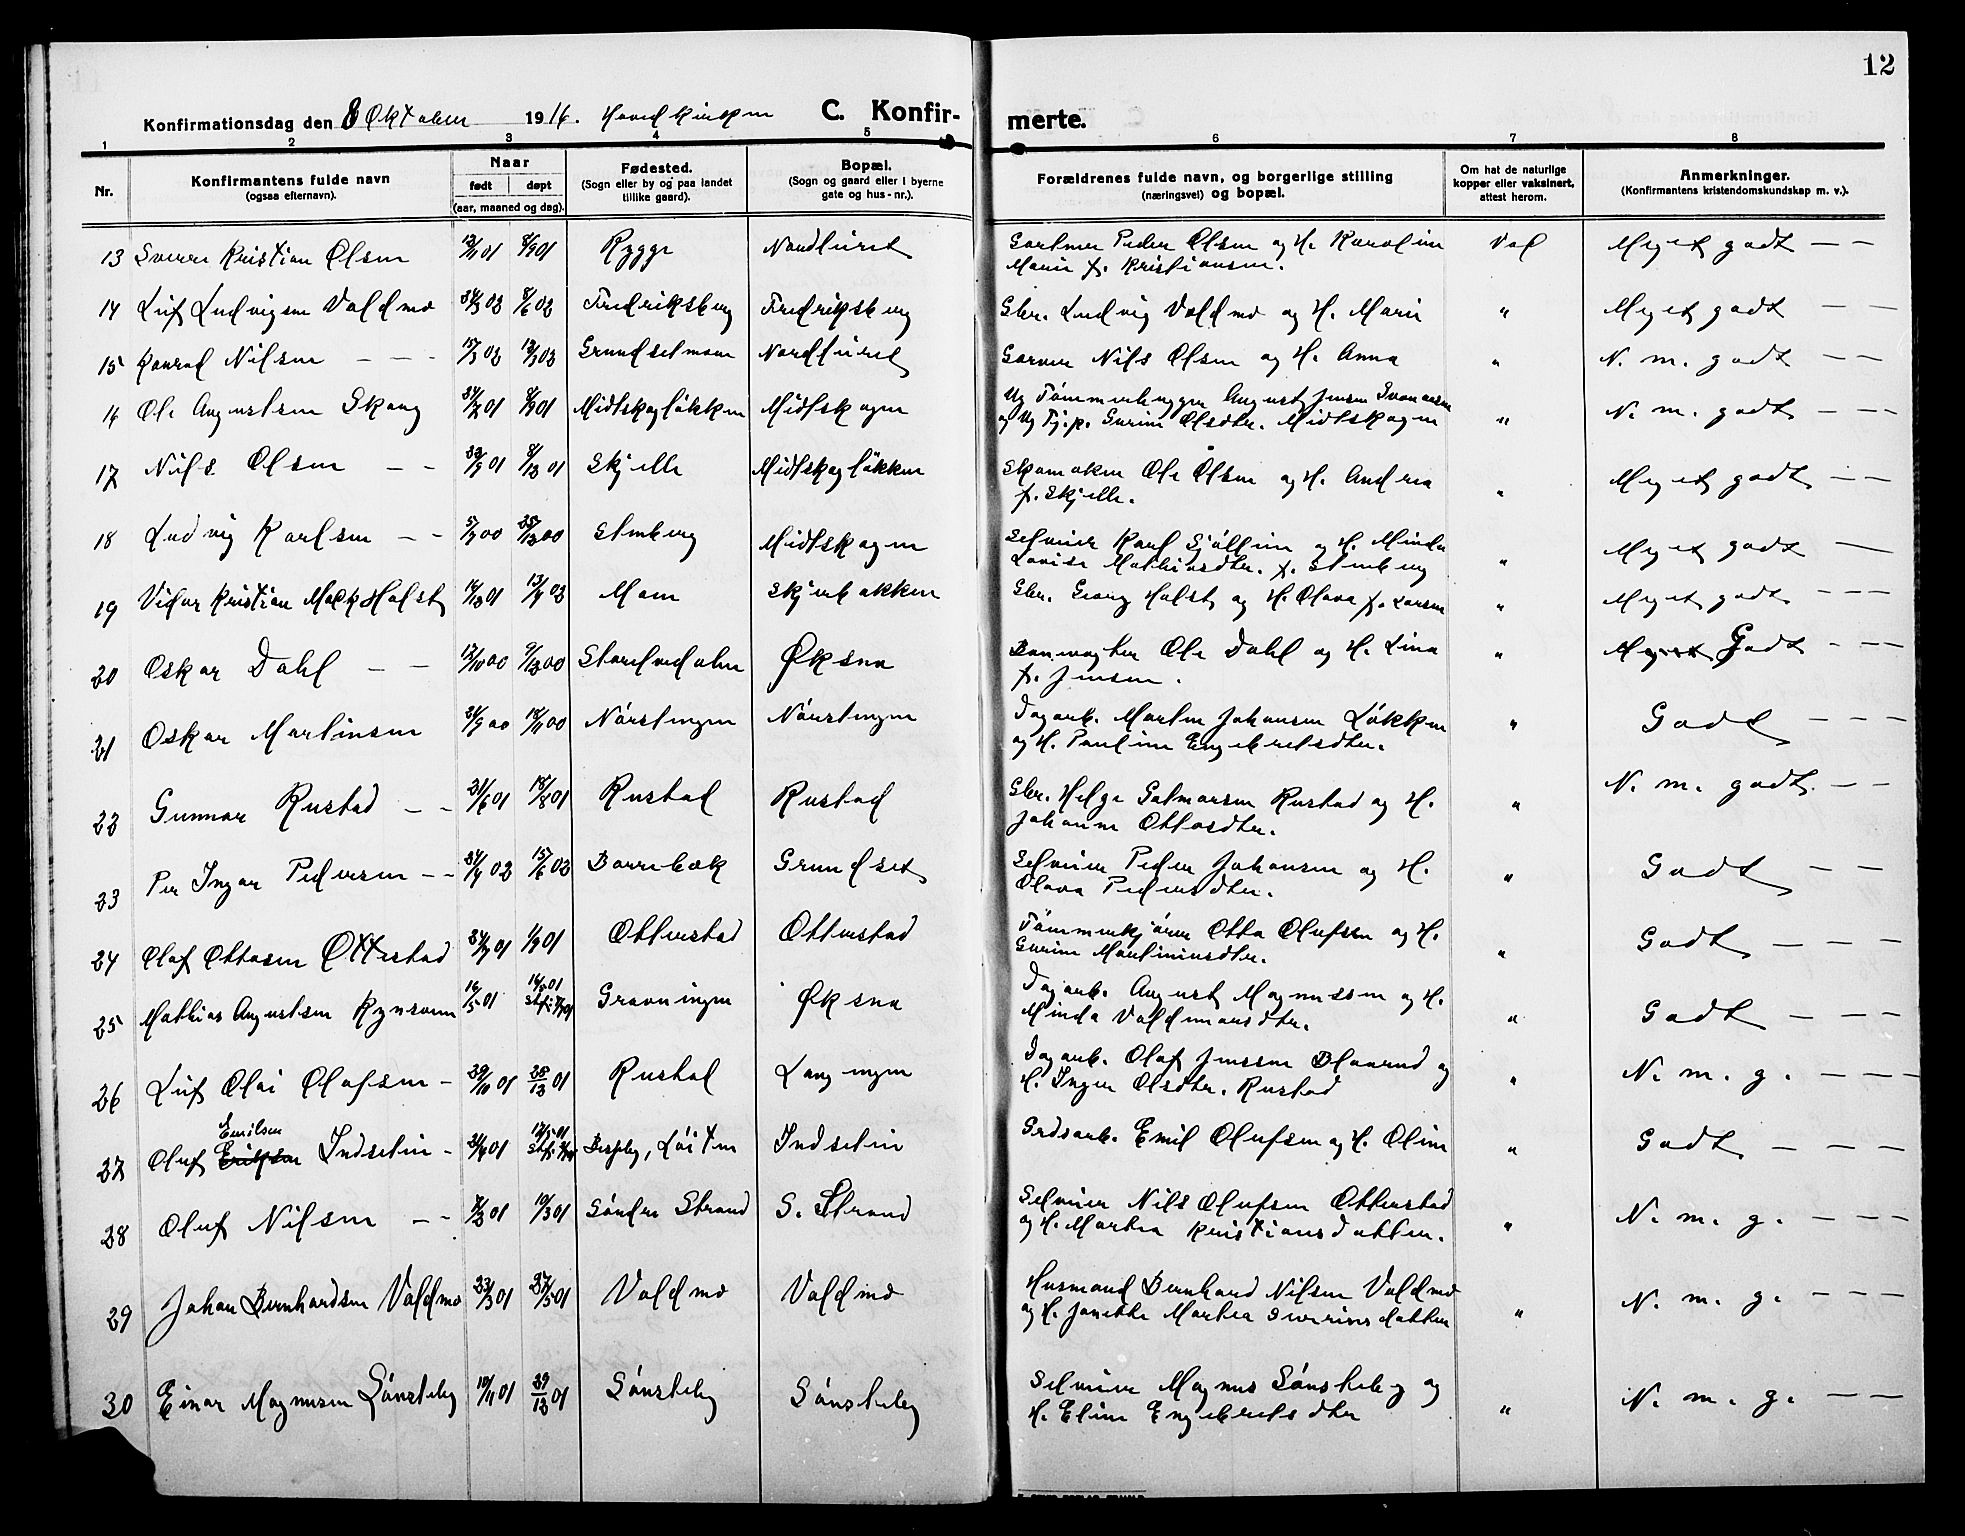 12
Konfirmationsdag den 8 Oktober 1916. Hovedkirken C. Konfir-
merte.
1 2 3 4 5 6 7 8
Nr.
Konfirmantens fulde navn
(ogsaa efternavn).
Naar
født døpt
(aar, maaned og dag).
Fødested.
(Sogn eller by og paa landet
tillike gaard).
Bopæl.
(Sogn og gaard eller i byerne
gate og hus-nr.).
Forældrenes fulde navn, og borgerlige stilling
(næringsvei) og bopæl.
Om hat de naturlige
kopper eller vaksinert,
attest herom.
Anmerkninger.
(Konfirmantens kristendomskundskap m. v.).
13 Sverre Kristian Olsen Rygge Gartner Peder Olsen og H. Karoline Meget godt – –
Marie f. Kristiansen.
14 Leif Ludvigsen Voldmo Fredriksberg Fredriksberg Gbr. Ludvig Voldmo og H. Marie " Meget godt – –
15 Konrad Nilsen – – – Grundsetmoen Garver Nils Olsen og H. Anna " N. m. godt – –
16 Ole Augustsen Skaug Midtskogløkken Midtskogen Ug Tømmerhugger August Jensen
og Ug Tj.p. Gurine Olsdtr. Midtskogen " N. m. godt – – –
17 Nils Olsen – – Skjelle Midtskogløkken Skomaker Ole Olsen og H. Andrea
f. Skjelle. " Meget godt – –
18 Ludvig Karlsen – – Stenberg Midtskogen Selveier Karl og H. Minda
Lovise Mathisdtr. f. Stenberg " Meget godt –
19 Vidar Kristian Holst Moen Skjerbakken Gbr. Georg Holst og H. Olava f. Larsen " Meget godt – – –
20 Oskar Dahl – – Øksna Banevogter Ole Dahl og H. Lina
f. Jensen. " Meget Godt – – –
21 Oskar Martinsen Nørstingen Nørstingen Dagarb. Martin Johansen Løkken
og H. Pauline Engebretsdtr. " Godt – – –
22 Gunnar Rustad – – 21/6 01 18/8 01 Rustad Rustad Gbr. Helge Gulmarsen Rustad og H.
Johanne Ottosdtr. " N. m. godt – –
23 Per Ingar Pedersen – – 15/6 02 Borrebæk Grundset Selveier Peder Johansen og H.
Olava Pedersdtr. " Godt – –
24 Olaf Ottosen Otterstad Otterstad Otterstad Tømmerkjører Otto Olufsen og H.
Gurine Martiniusdtr. " Godt – – –
25 Mathias Augustsen 16/5 01 Gravningen Øksna Dagarb. August Magnussen og H.
Minda Valdemarsdtr. " Godt – – –
26 Leif Olai Olafsen – 29/10 01 28/12 01 Rustad Langingen Dagarb. Olaf Jenssen og
H. Inger Olsdtr. Rustad " N. m. g. – – –
27 Oluf Emilsen Indsetin – Løiten Indsetin Grdsarb. Emil Olufsen og H. Oline " Godt – – –
28 Oluf Nilsen – – 10/3 01 Søndre Strand S. Strand Selveier Nils Olufsen Otterstad
og H. Marthea Kristiansdatter. " N. m. g. – – –
29 Johan Bernhardsen Voldmo 23/3 01 27/5 01 Voldmo Voldmo Husmand Bernhard Nilsen Voldmo
og H. Janette Marthea Sverinsdatter " N. m. g. – – –
30 Einar Magnusen Sønsteby 10/11 01 29/12 01 Sønsteby Sønsteby Selveier Magnus Sønsteby og
H. Eline Engebretsdtr " N. m. g. – –